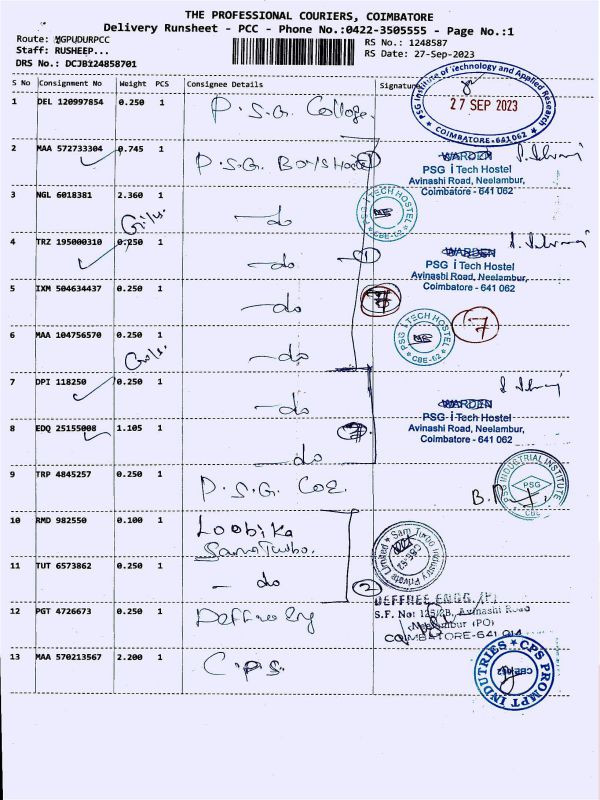 THE PROFESSIONAL COURIERS, COIMBATORE
Delivery Runsheet - PCC - Phone No.:0422-3505555 - Page No.:1
Route: MGPUDURPCC
RS No.: 1248587
Staff: RUSHEEP...
RS Date: 27-Sep-2023
DRS No.: DCJB124858701
S No Consignment No Weight PCS Consignee Details Signature
PSG Institute of Technology and Applied Research
27 SEP 2023
COIMBATORE-641 062
1 DEL 120997854 0.250 1 P.S.G. College
2 MAA 572733304 0.745 1 P.S.G. Boys Hostel
WARDEN
PSG i Tech Hostel
Avinashi Road, Neelambur,
Coimbatore - 641 062
3 NGL 6018381 2.360 1 - do
PSG i TECH HOSTEL
CBE-62
4 TRZ 195000310 0.250 1 - do 1
WARDEN
PSG i Tech Hostel
Avinashi Road, Neelambur,
Coimbatore - 641 062
5 IXM 504634437 0.250 1 - do
7
6 MAA 104756570 0.250 1 - do
PSG i TECH HOSTEL
CBE-62
7 DPI 118250 0.250 1 - do
WARDEN
PSG i Tech Hostel
Avinashi Road, Neelambur,
Coimbatore - 641 062
8 EDQ 25155008 1.105 1 - do
9 TRP 4845257 0.250 1 P.S.G. COE.
PSG INDUSTRIAL INSTITUTE
PSG
CBE
10 RMD 982550 0.100 1 Loobika
Sam Turbo.
Sam Turbo Industry Private Limited
CBE-62
11 TUT 6573862 0.250 1 - do 2
DEFFREE ENGG. (P)
S.F. No: 125/2B, Avinashi Road
Neelambur (PO)
COIMBATORE-641 014
12 PGT 4726673 0.250 1 Deffree
13 MAA 570213567 2.200 1 C.P.S.
CPS PROMPT INDUTRIES
CBE-062